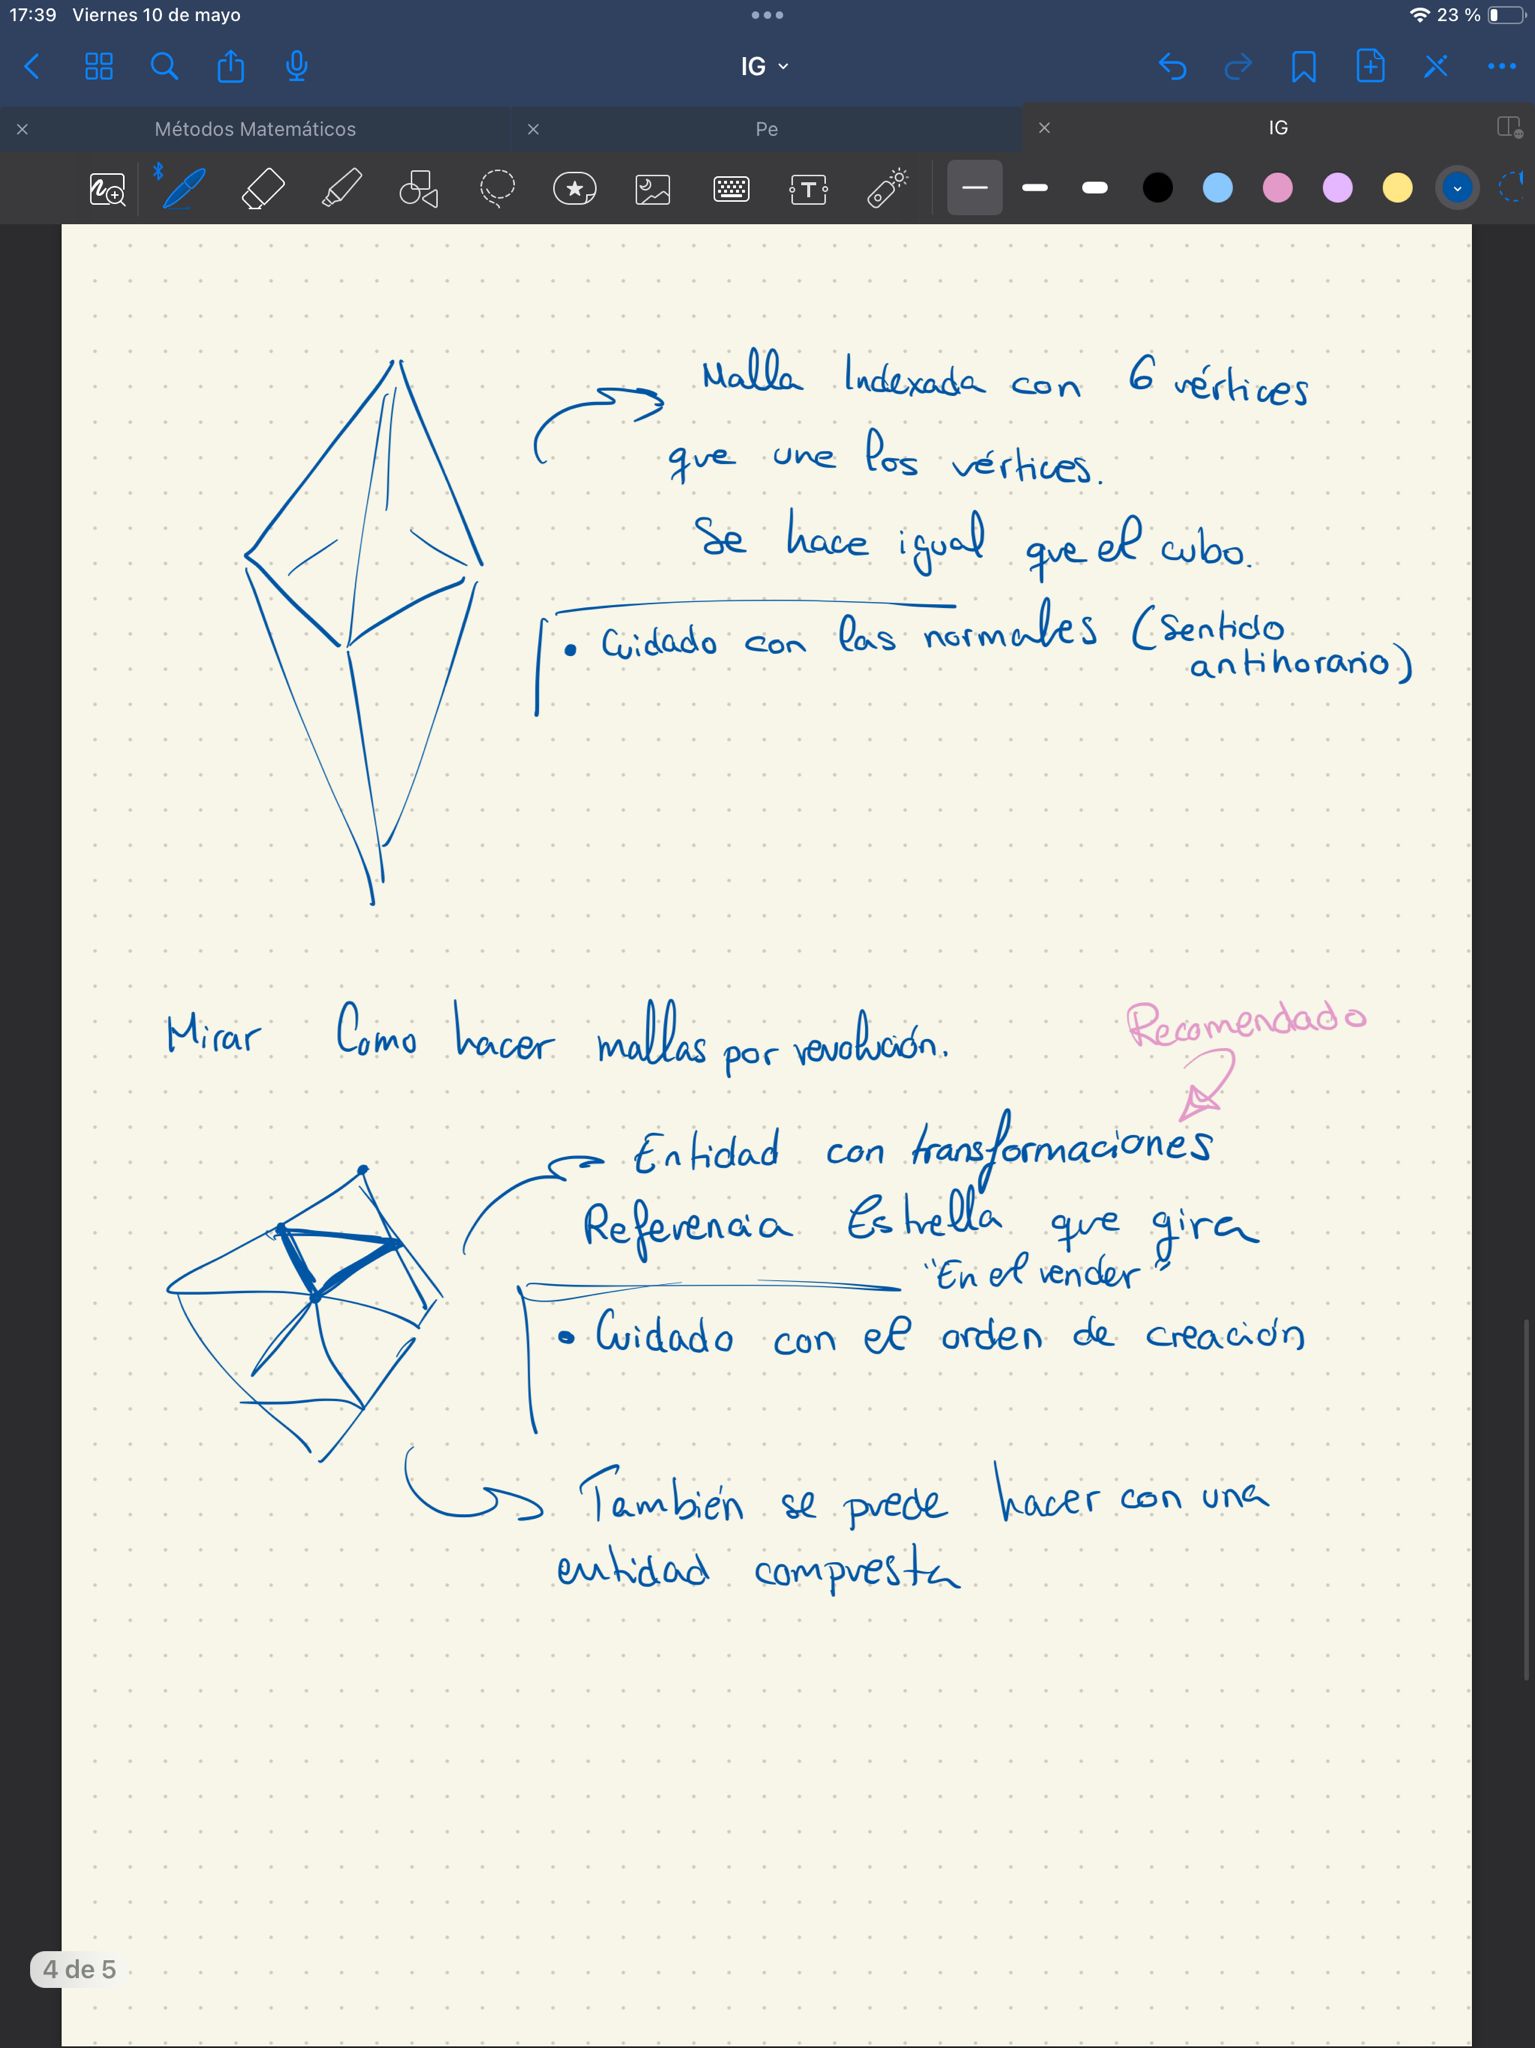 17:39 Viernes 10 de mayo
23 %
IG
Métodos Matemáticos
Pe
IG
Malla Indexada con 6 vértices
que une los vértices.
Se hace igual que el cubo.
• Cuidado con las normales (Sentido
antihorario)
Mirar Como hacer mallas por revolución.
Recomendado
Entidad con transformaciones
Referencia Estrella que gira
"En el render"
• Cuidado con el orden de creación
También se puede hacer con una
entidad compuesta
4 de 5